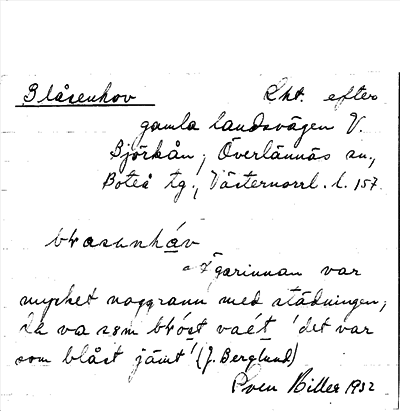 Blåsenhov Lht. efter
gamla landsvägen V.
Björkån, Överlännäs sn,
Boteå tg., Västernorrl. l. 157.
Ägarinnan var
mycket noggrann med städningen,
de va såm vaét 'det var
som blåst jämt' (J. Berglund)
Sven Hiller 1932